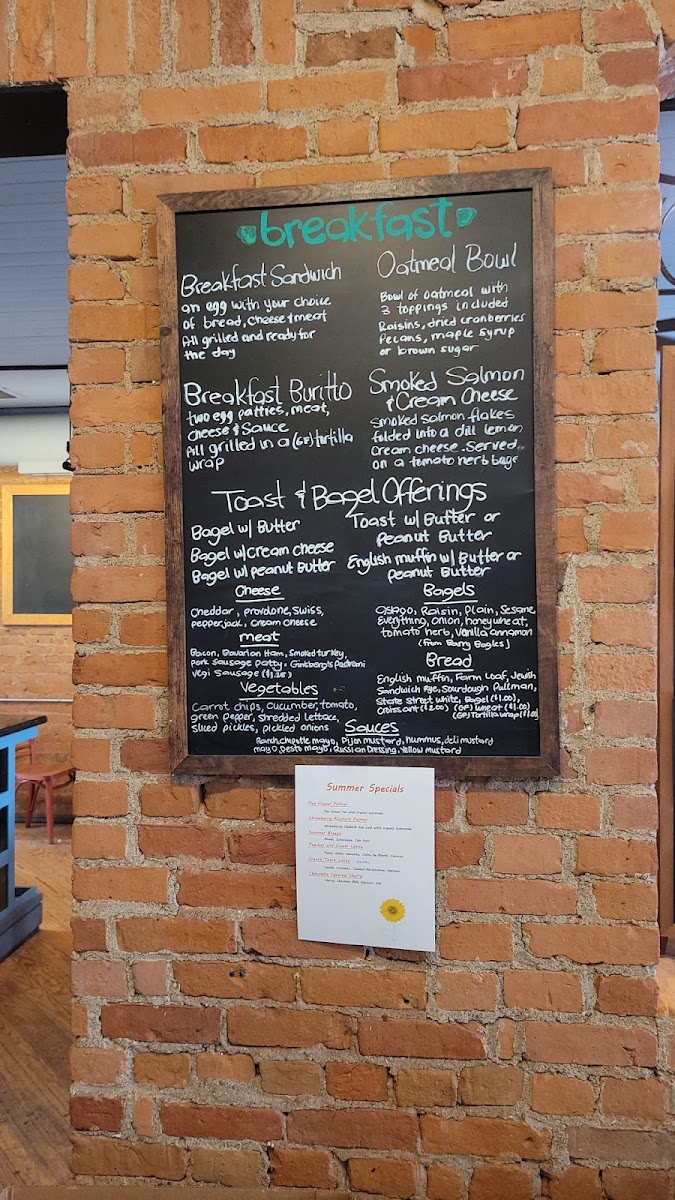 breakfast
Breakfast Sandwich
an egg with your choice
of bread, cheese & meat
All grilled and ready for
the day
Oatmeal Bowl
Bowl of oatmeal with
3 toppings included
Raisins, dried cranberries
Pecans, maple syrup
or brown sugar
Breakfast Buritto
two egg patties, meat,
cheese & sauce
All grilled in a (GF) turtilla
wrap
Smoked Salmon
& Cream Cheese
Smoked salmon flakes
folded into a dill lemon
cream cheese. Served
on a tomato herb bage
Toast & Bagel Offerings
Bagel w/ Butter
Bagel w/cream cheese
Bagel w/ peanut Butter
Toast w/ Butter or
Peanut Butter
English muffin w/ Butter or
peanut Butter
Cheese
Cheddar, provolone, swiss,
pepperjack, cream cheese
meat
Bacon, Bavarian Ham, smoked turkey,
pork sausage patty, Ginsberg's Pastrami
Vegi Sausage
Vegetables
Carrot chips, cucumber, tomato,
green pepper, shredded lettace,
sliced pickles, pickled onions
Bagels
asiago, Raisin, Plain, Sesame,
Everything, onion, honeywheat,
tomato herb, Vanilla cinnamon
(from Barry Bagles)
Bread
English muffin, Farm Loaf, Jewish
Sandwich Rye, Sourdough Pullman,
State Street white, Bagel ($1.00)
Croissant ($2.00) (GF) wheat ($1.00)
(GF) Tortilla wrap ($1.00)
Sauces
Ranch, chipotle mayo, Dijon mustard, hummus, deli mustard
mayo, pesto mayo, Russian Dressing, Yellow mustard
Summer Specials
Strawberry Rhubarb Palmer
Summer Breeze
French Toast Latte
Chocolate Covered Cherry